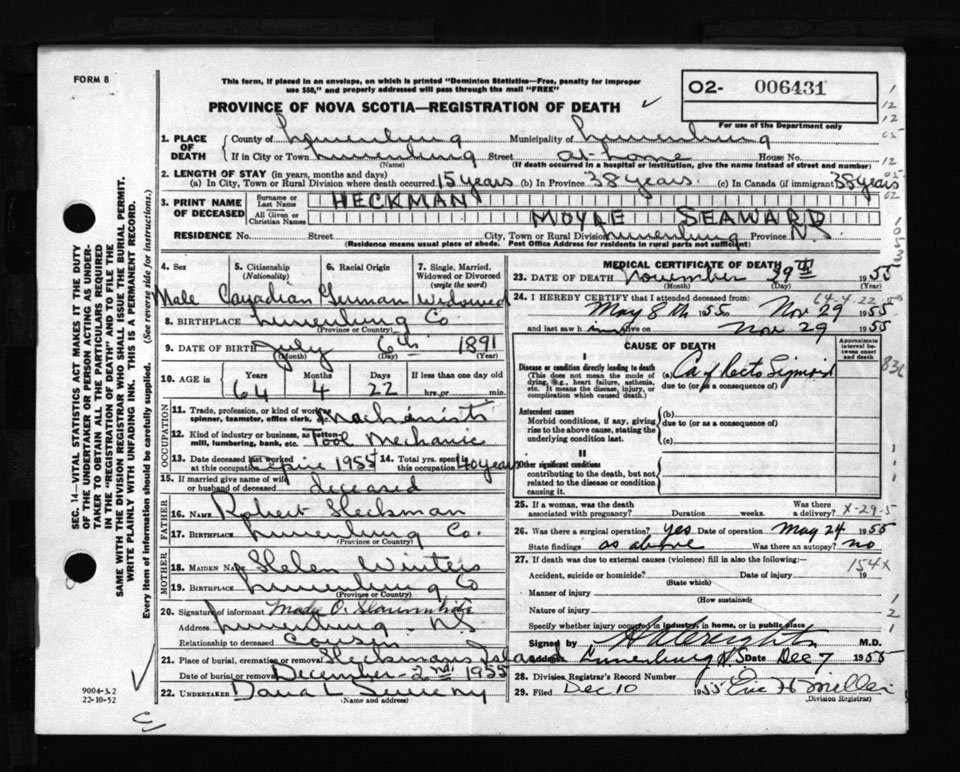 FORM 8
This form, if placed in an envelope, on which is printed "Dominion Statistics—Free, penalty for improper
use $50," and properly addressed will pass through the mail "FREE"
PROVINCE OF NOVA SCOTIA—REGISTRATION OF DEATH
O2- 006431
For use of the Department only
1. PLACE OF DEATH
County of Lunenburg Municipality of Lunenburg
If in City or Town Lunenburg Street at home House No.
(Name) (If death occurred in a hospital or institution, give the name instead of street and number)
2. LENGTH OF STAY (in years, months and days)
(a) In City, Town or Rural Division where death occurred 15 years (b) In Province 38 years. (c) In Canada (if immigrant) 38 years
3. PRINT NAME OF DECEASED
Surname or Last Name HECKMAN
All Given or Christian Names MOYLE SEAWARD
RESIDENCE No. Street City, Town or Rural Division Lunenburg Province N.S.
(Residence means usual place of abode. Post Office Address for residents in rural parts not sufficient)
4. Sex Male
5. Citizenship (Nationality) Canadian
6. Racial Origin German
7. Single, Married, Widowed or Divorced (write the word) Widowed
8. BIRTHPLACE Lunenburg Co
(Province or Country)
9. DATE OF BIRTH July 6th 1891
(Month) (Day) (Year)
10. AGE in Years Months Days If less than one day old
64 4 22 hrs. or min.
OCCUPATION
11. Trade, profession, or kind of work as spinner, teamster, office clerk, etc. Machinist
12. Kind of industry or business, as cotton mill, lumbering, bank, etc. Tool Mechanic
13. Date deceased last worked at this occupation 1955 14. Total yrs. spent at this occupation 40 years
15. If married give name of wife or husband of deceased deceased
FATHER
16. NAME Robert Heckman
17. BIRTHPLACE Lunenburg Co.
(Province or Country)
MOTHER
18. MAIDEN NAME Helen Winters
19. BIRTHPLACE Lunenburg Co
(Province or Country)
20. Signature of informant
Address Lunenburg N.S
Relationship to deceased Cousin
21. Place of burial, cremation or removal Heckmans Island
Date of burial or removal December 2nd 1955
22. UNDERTAKER Dana L Sweeny
(Name and address)
MEDICAL CERTIFICATE OF DEATH
23. DATE OF DEATH November 29th 1955
(Month) (Day)
64-4-22
24. I HEREBY CERTIFY that I attended deceased from:
May 8th 1955 Nov 29 1955
and last saw him alive on Nov 29 1955
CAUSE OF DEATH
Approximate interval between onset and death
I
Disease or condition directly leading to death
(This does not mean the mode of dying, e.g., heart failure, asthenia, etc. It means the disease, injury, or complication which caused death.)
(a) Ca of Recto Sigmoid
due to (or as a consequence of)
Antecedent causes
Morbid conditions, if any, giving rise to the above cause, stating the underlying condition last.
(b)
due to (or as a consequence of)
(c)
II
Other significant conditions
contributing to the death, but not related to the disease or condition causing it.
25. If a woman, was the death associated with pregnancy? Duration weeks. Was there a delivery?
X-29-5
26. Was there a surgical operation? yes Date of operation May 24 1955
State findings as above Was there an autopsy? no
27. If death was due to external causes (violence) fill in also the following:—
154X
Accident, suicide or homicide? Date of injury 19
(State which)
Manner of injury
(How sustained)
Nature of injury
Specify whether injury occurred in industry, in home, or in public place
Signed by M.D.
Address Lunenburg NS Date Dec 7 1955
28. Division Registrar's Record Number
29. Filed Dec 10 1955 Eric H Miller
(Division Registrar)
9004-3.2
22-10-52
SEC. 14—VITAL STATISTICS ACT MAKES IT THE DUTY
OF THE UNDERTAKER OR PERSON ACTING AS UNDER-
TAKER TO OBTAIN ALL THE PARTICULARS REQUIRED
IN THE "REGISTRATION OF DEATH" AND TO FILE THE
SAME WITH THE DIVISION REGISTRAR WHO SHALL ISSUE THE BURIAL PERMIT.
WRITE PLAINLY WITH UNFADING INK. THIS IS A PERMANENT RECORD.
Every item of information should be carefully supplied. (See reverse side for instructions.)